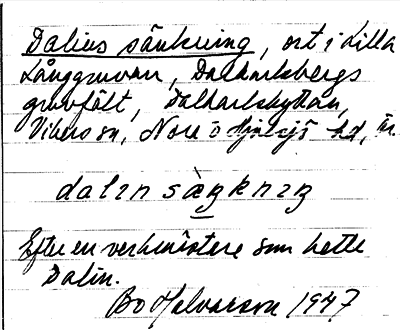 Dalins sänkning, ort i Lilla
Långgruvan, Dalkarlsbergs
gruvfält, Dalkarlshyttan,
Vikers sn, Nora o Hjulsjö hd, Ör.
dalın sàŋknıŋ
Efter en verkmästare som hette
Dalin.
Bo Halvarson 1947